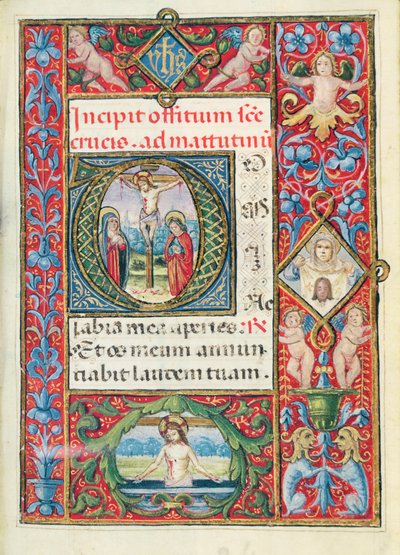 yhs
Incipit offitium sc̄e
crucis. ad mattutinū
DO
M
I
Ne
labia mea aperies: ℟
Et os meum annun
ciabit laudem tuam.